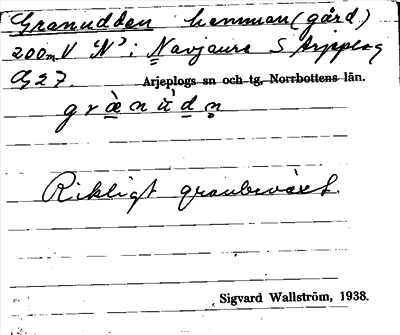 Granudden hemman (gård)
200 m V "N" i Navjaure S Arjeplog
G27. Arjeplogs sn och tg, Norrbottens län.
grànùdṇ
Rikligt granbeväxt.
Sigvard Wallström, 1938.